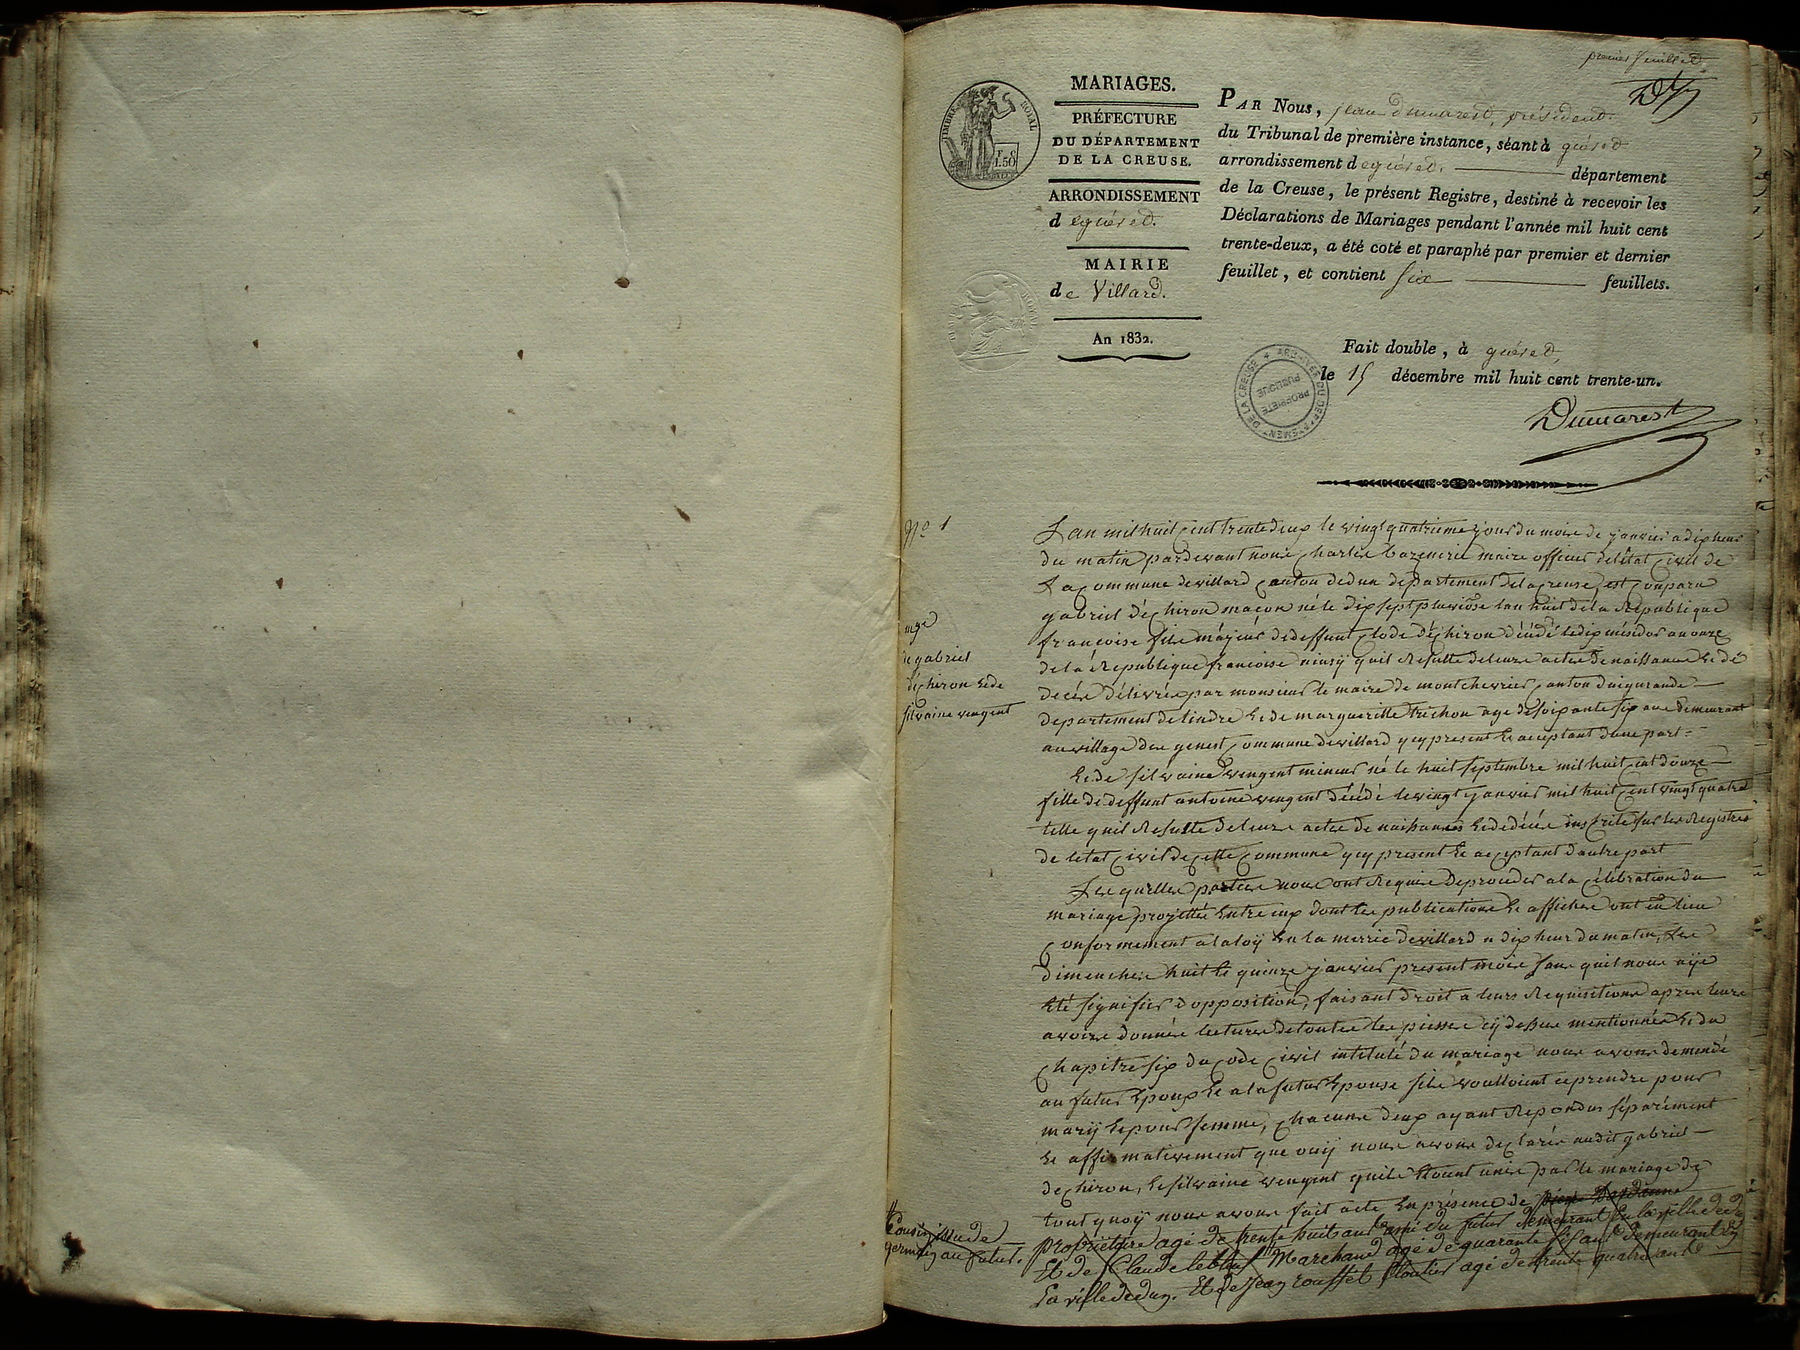 premier feuillet.
MARIAGES.
PRÉFECTURE
DU DÉPARTEMENT
DE LA CREUSE.
ARRONDISSEMENT
d eguéret.
MAIRIE
de Villard.
An 1832.
TIMBRE ROYAL
F C
1.50
PAR Nous, jean Dumarest, président
du Tribunal de première instance, séant à guéret
arrondissement d eguéret. département
de la Creuse, le présent Registre, destiné à recevoir les
Déclarations de Mariages pendant l'année mil huit cent
trente-deux, a été coté et paraphé par premier et dernier
feuillet, et contient six feuillets.
Fait double, à guéret,
le 15 décembre mil huit cent trente-un.
Dumarest
ARCHIVES DU DEPARTEMENT DE LA CREUSE
PROPRIETE
PUBLIQUE
No 1
mge
de gabriel
déchiron et de
silvaine vengent
Lan mil huit cent trente deux le vingt quatrieme jour du mois de janvier a dix heur
du matin pardevant nous Charles bazenerie maire officier deletat Civil de
La Commune devillard Canton dedun departement delacreuse, est Conparu
gabriel déchiron maçon né le dix sept pluviose lan huit de la Republique
francoise fils majeur dedeffunt Clode déchiron décédé le dix mésidor an onze
de la Republique francoise ainsÿ quil Resulte deleurs actes de naissance et dé
décés délivrés par monsieur le maire de montchevrier Canton daigurande
departement delindre et de margueritte trichon age de soixante six ans demeurant
au village des genest Commune devillard ycy present et acceptant dune part
et de silvaine vengent mineur né le huit septembre mil huit cent douze
fille de deffunt antoine vengent décédé le vingt janvier mil huit Cent vingt quatre
telle quil Resulte deleurs actes de naissances et dedécés inscrite sur les Registres
de letat Civil de Cette Commune ycy present et acceptant dautre part
Les quelles parties nous ont Requis deproceder a la Célébration du
mariage projettés Entre eux dont les publications et affiches ont eu lieu
Conformement a la loÿ En la merrie devillard a dix heur du matin, Les
dimenches huit et quinze janvier present mois sans quil nous aÿe
Eté signifier dopposition, faisant droit a leurs Requisitions apres leurs
avoirs donnés lectures detoutes les piesses cÿ dessus mentionnés et du
Chapitre six du Code Civil intitulé du mariage nous avons demendé
au futur Epoux et a la futur Epouse sils voulloient ce prendre pour
marÿ et pour femme, Chacuns deux ayant Repondus séparément
et affirmativement que ouÿ nous avons declarés audit gabriel
dechiron, et silvaine vengent quils Etount unis par le mariage de
tout quoÿ nous avons fait acte En présence de
propriétaire agé de trente huit ans ami du futur demeurant En la ville dedun
Et de Claude leblanc Marchand agé de quarante six ans demeurant En
La ville dedun. Et de jean rouffet Cloutier agé de trente quatre ans
Cousin issu de
germain au futur.